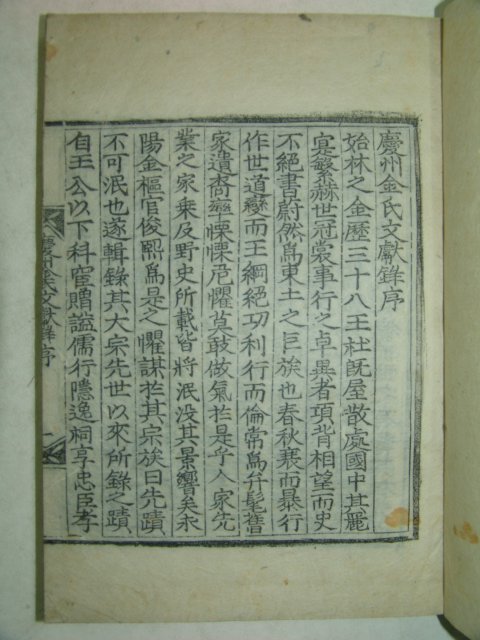 慶州金氏文獻錄序
始林之金歷三十八王社旣屋散處國中其麗
寔繁赫世冠裳事行之卓異者項背相望而史
不絕書蔚然爲東土之巨族也春秋衰而暴行
作世道變而王綱絕功利行而倫常爲弁髦舊
家遺裔擧慄慄危懼莫敢做氣於是乎人家先
業之家乘及野史所載皆將泯没其景響矣永
陽金樞官俊熙爲是之懼謀於其宗族曰先蹟
不可泯也遂輯錄其大宗先世以來所錄之蹟
自王公以下科宦贈謚儒行隱逸祠享忠臣孝
慶州金氏文獻錄序
一